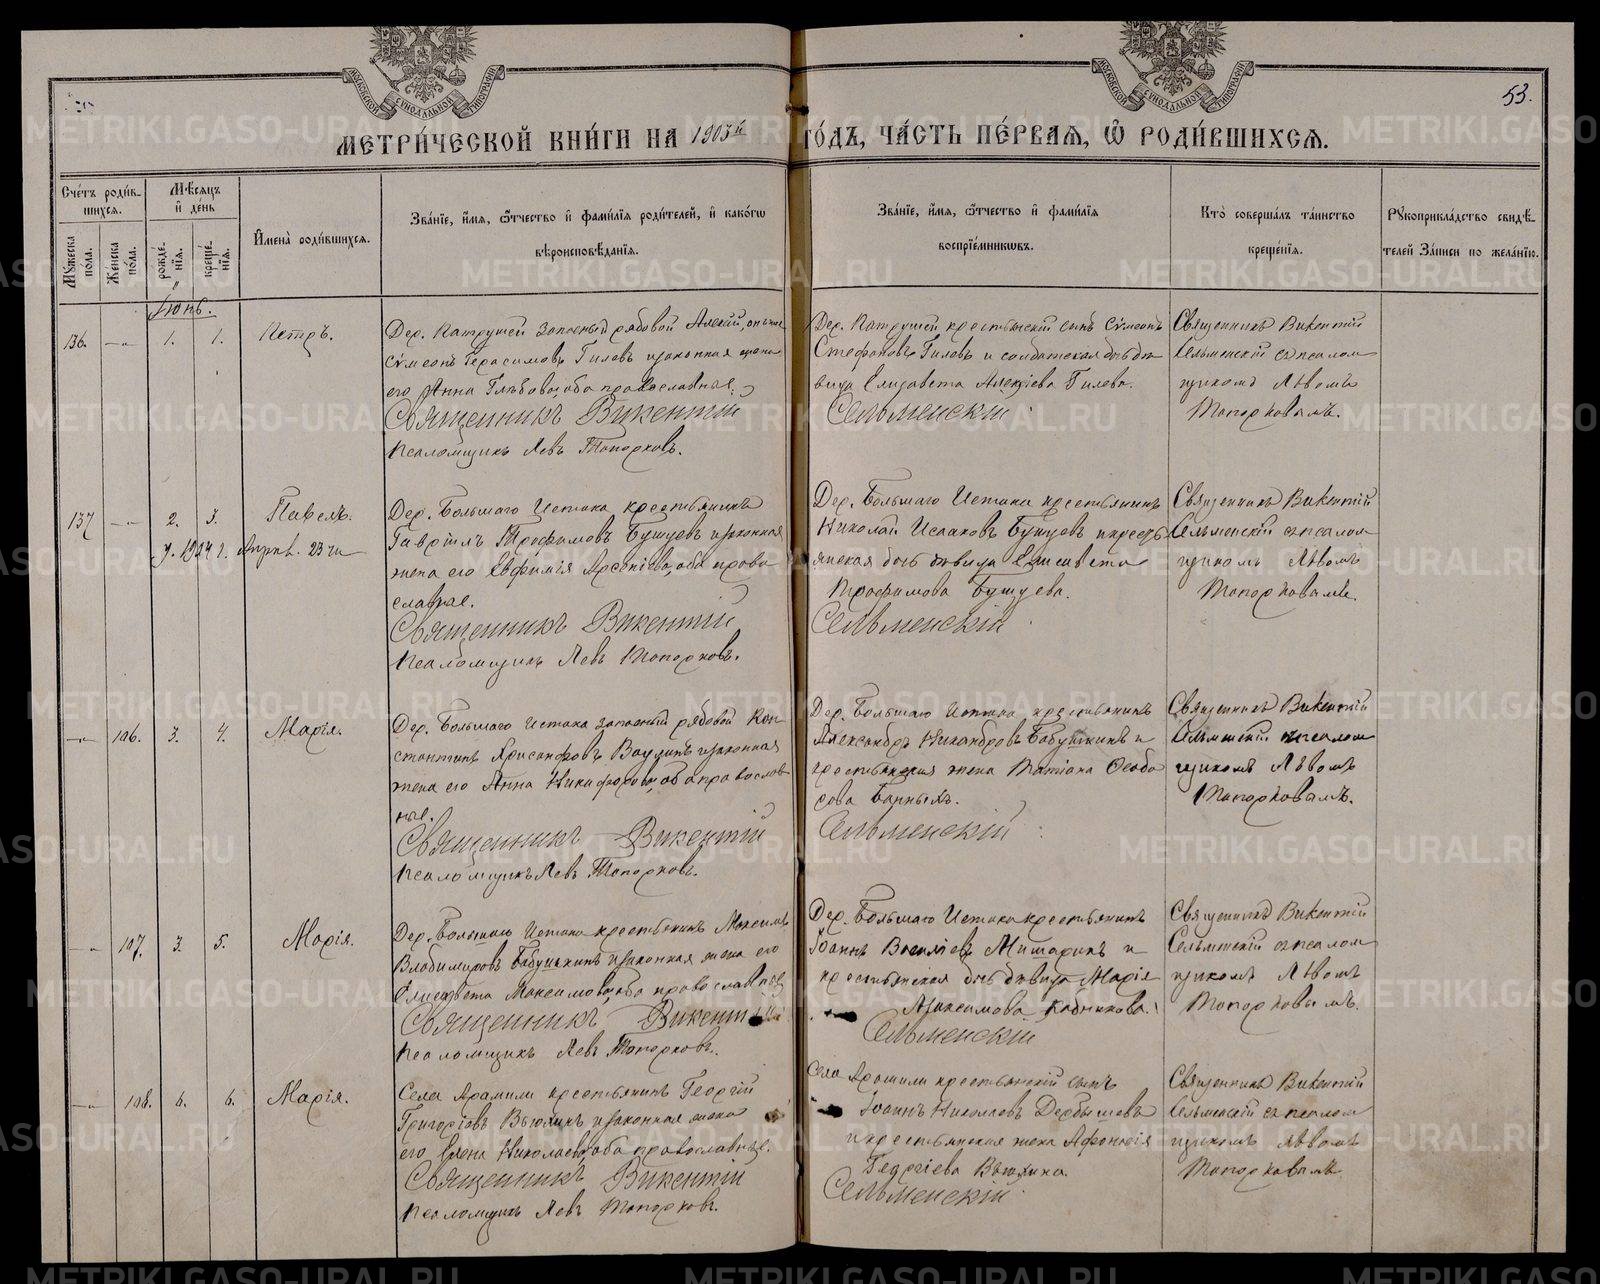 МОСКОВСКОЙ СѴНОДАЛЬНОЙ ТИПОГРАФІИ
МОСКОВСКОЙ СѴНОДАЛЬНОЙ ТИПОГРАФІИ
53.
МЕТРИ́ЧЕСКОЙ КНИ́ГИ НА 1903й ГО́ДЪ, ЧА́СТЬ ПЕ́РВАѦ, Ѡ҆ РОДИ́ВШИХСѦ.
Сче́тъ роди́в-
шихсѧ.
Мꙋ́жеска по́ла.
Же́нска по́ла.
Мѣ́сѧцъ и҆ де́нь
рожде́-нїѧ.
креще́-нїѧ.
И҆мена̀ роди́вшихсѧ.
Зва́нїе, и҆́мѧ, ѻ҆́тчество и҆ фами́лїѧ роди́телей, и҆ како́гѡ
вѣроисповѣ́данїѧ.
Зва́нїе, и҆́мѧ, ѻ҆́тчество и҆ фами́лїѧ
воспрїе́мникѡвъ.
Кто̀ соверша́лъ та́инство
креще́нїѧ.
Рꙋкоприкла́дство свидѣ́-
телей за́писи по жела́нїю.
Іюнь.
136. — 1. 1. Петръ.
Дер. Патрушей запасный рядовой Алексій, онъ же
Сѵмеонъ Герасимовъ Гилевъ и законная жена
его Анна Глѣбова, оба православные.
Священникъ Викентій
Псаломщикъ Левъ Топорковъ.
Дер. Патрушей крестьянскій сынъ Сѵмеонъ
Стефановъ Гилевъ и солдатская дочь дѣ
вица Елизавета Алексіева Гилева.
Сельменскій
Священникъ Викентій
Сельменскій съ псалом
щикомъ Львомъ
Топорковымъ.
137 — 2. 3. Павелъ.
у. 1904 г. Апрѣл. 23 чи
Дер. Большаго Истока крестьянинъ
Гавріилъ Трофимовъ Бушуевъ и законная
жена его Евфимія Арсеніева, оба право
славные.
Священникъ Викентій
Псаломщикъ Левъ Топорковъ.
Дер. Большаго Истока крестьянинъ
Николай Исааковъ Бушуевъ и кресть
янская дочь дѣвица Елисавета
Трофимова Бушуева.
Сельменскій
Священникъ Викентій
Сельменскій съ псалом
щикомъ Львомъ
Топорковымъ.
— 106. 3. 4. Марія.
Дер. Большаго Истока запасный рядовой Кон
стантинъ Хрисанфовъ Ваулинъ и законная
жена его Анна Никифорова, оба православ
ные.
Священникъ Викентій
Псаломщикъ Левъ Топорковъ.
Дер. Большаго Истока крестьянинъ
Александръ Никандровъ Бабушкинъ и
крестьянская жена Татіана
Банныхъ.
Сельменскій
Священникъ Викентій
Сельменскій съ псалом
щикомъ Львомъ
Топорковымъ.
— 107. 3. 5. Марія.
Дер. Большаго Истока крестьянинъ Максимъ
Владимировъ Бабушкинъ и законная жена его
Елисавета Максимова, оба православные
Священникъ Викентій
Псаломщикъ Левъ Топорковъ.
Дер. Большаго Истока крестьянинъ
Іоаннъ Василіевъ Мишаринъ и
крестьянская дочь дѣвица Марія
Максимова
Сельменскій
Священникъ Викентій
Сельменскій съ псалом
щикомъ Львомъ
Топорковымъ.
— 108. 6. 6. Марія.
Села Арамили крестьянинъ Георгій
Григоріевъ Вьюхинъ и законная жена
его Елена Николаева, оба православные.
Священникъ Викентій
Псаломщикъ Левъ Топорковъ.
Села Арамили крестьянскій сынъ
Іоаннъ Николаевъ Дербышевъ
и крестьянская жена Афонасія
Георгіева Вьюхина.
Сельменскій
Священникъ Викентій
Сельменскій съ псалом
щикомъ Львомъ
Топорковымъ
METRIKI.GASO-URAL.RU